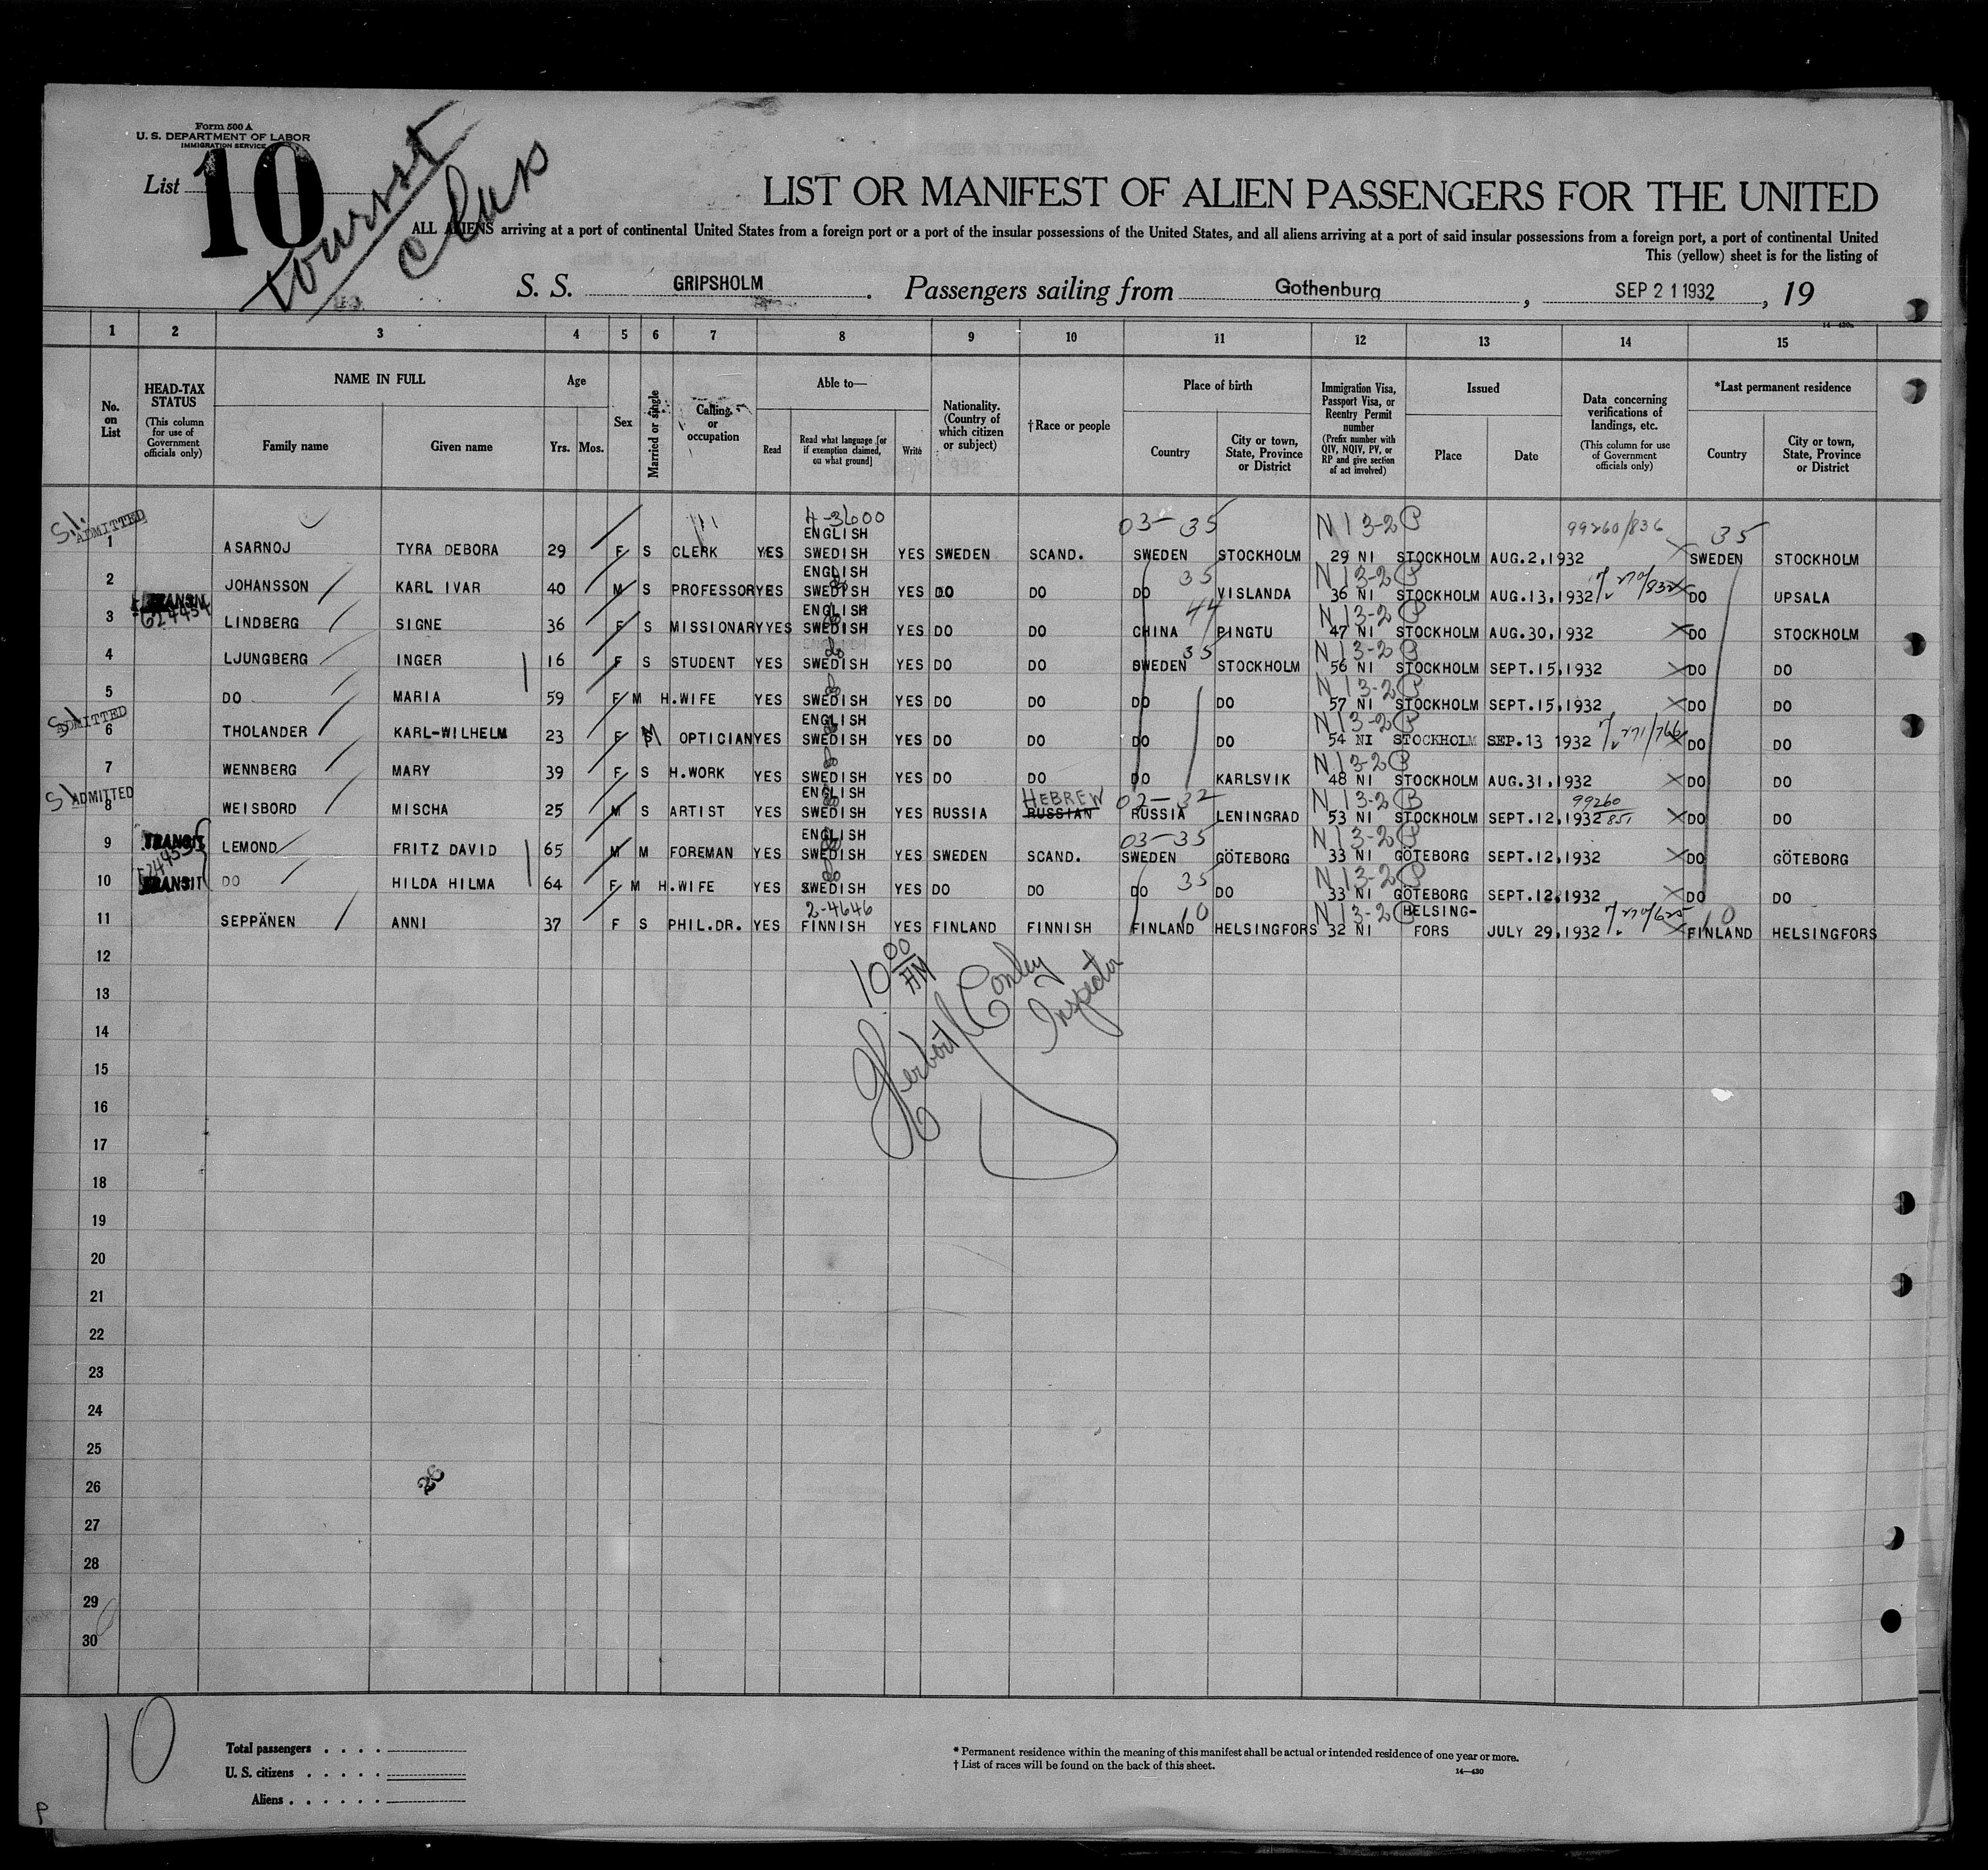 Form 500 A
U. S. DEPARTMENT OF LABOR
IMMIGRATION SERVICE
List 10
tourist
class
LIST OR MANIFEST OF ALIEN PASSENGERS FOR THE UNITED
ALL ALIENS arriving at a port of continental United States from a foreign port or a port of the insular possessions of the United States, and all aliens arriving at a port of said insular possessions from a foreign port, a port of continental United
This (yellow) sheet is for the listing of
S. S. GRIPSHOLM. Passengers sailing from Gothenburg, SEP 21 1932, 19
1 2 3 4 5 6 7 8 9 10 11 12 13 14 15
No. on List
HEAD-TAX STATUS (This column for use of Government officials only)
NAME IN FULL Family name Given name
Age Yrs. Mos.
Sex
Married or single
Calling or occupation
Able to— Read Read what language [or if exemption claimed, on what ground] Write
Nationality. (Country of which citizen or subject)
†Race or people
Place of birth Country City or town, State, Province or District
Immigration Visa, Passport Visa, or Reentry Permit number (Prefix number with QIV, NQIV, PV, or RP and give section of act involved)
Issued Place Date
Data concerning verifications of landings, etc. (This column for use of Government officials only)
*Last permanent residence Country City or town, State, Province or District
S.I. ADMITTED 4-3600 03-35 N13-2P 99260/836 35
1 ASARNOJ TYRA DEBORA 29 F S CLERK YES ENGLISH SWEDISH YES SWEDEN SCAND. SWEDEN STOCKHOLM 29 NI STOCKHOLM AUG.2,1932 X SWEDEN STOCKHOLM
35 N13-2P
2 JOHANSSON KARL IVAR 40 M S PROFESSOR YES ENGLISH SWEDISH YES DO DO DO VISLANDA 36 NI STOCKHOLM AUG.13,1932 X DO UPSALA
TRANSIT 624454 44 N13-2P
3 LINDBERG SIGNE 36 F S MISSIONARY YES ENGLISH SWEDISH YES DO DO CHINA PINGTU 47 NI STOCKHOLM AUG.30,1932 X DO STOCKHOLM
35 N13-2P
4 LJUNGBERG INGER 16 F S STUDENT YES SWEDISH YES DO DO SWEDEN STOCKHOLM 56 NI STOCKHOLM SEPT.15,1932 X DO DO
N13-2P
5 DO MARIA 59 F M H.WIFE YES SWEDISH YES DO DO DO DO 57 NI STOCKHOLM SEPT.15,1932 X DO DO
S.I. ADMITTED N13-2P
6 THOLANDER KARL-WILHELM 23 F M OPTICIAN YES ENGLISH SWEDISH YES DO DO DO DO 54 NI STOCKHOLM SEP.13 1932 X DO DO
N13-2P
7 WENNBERG MARY 39 F S H.WORK YES SWEDISH YES DO DO DO KARLSVIK 48 NI STOCKHOLM AUG.31,1932 X DO DO
S.I. ADMITTED HEBREW 02-32 N13-2B 99260/851
8 WEISBORD MISCHA 25 M S ARTIST YES ENGLISH SWEDISH YES RUSSIA RUSSIAN RUSSIA LENINGRAD 53 NI STOCKHOLM SEPT.12,1932 X DO DO
TRANSIT 03-35 N13-2P
9 LEMOND FRITZ DAVID 65 M M FOREMAN YES ENGLISH SWEDISH YES SWEDEN SCAND. SWEDEN GÖTEBORG 33 NI GÖTEBORG SEPT.12,1932 X DO GÖTEBORG
TRANSIT 35 N13-2P
10 DO HILDA HILMA 64 F M H.WIFE YES SWEDISH YES DO DO DO DO 33 NI GÖTEBORG SEPT.12,1932 X DO DO
2-4646 10 N13-2P 10
11 SEPPÄNEN ANNI 37 F S PHIL.DR. YES FINNISH YES FINLAND FINNISH FINLAND HELSINGFORS 32 NI HELSING-FORS JULY 29,1932 X FINLAND HELSINGFORS
12
10 00 AM
Herbert Conley
Inspector
13
14
15
16
17
18
19
20
21
22
23
24
25
26
26
27
28
29
30
10
Total passengers . . . .
U. S. citizens . . . . .
Aliens . . . . . .
* Permanent residence within the meaning of this manifest shall be actual or intended residence of one year or more.
† List of races will be found on the back of this sheet.
14—430
P